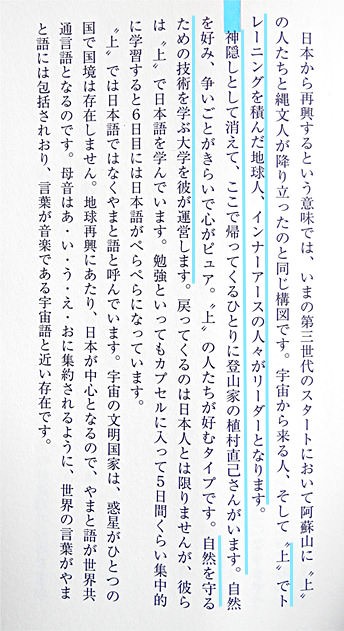 日本から再興するという意味では、いまの第三世代のスタートにおいて阿蘇山に〝上〟
の人たちと縄文人が降り立ったのと同じ構図です。宇宙から来る人、そして〝上〟でト
レーニングを積んだ地球人、インナーアースの人々がリーダーとなります。
神隠しとして消えて、ここで帰ってくるひとりに登山家の植村直己さんがいます。自然
を好み、争いごとがきらいで心がピュア。〝上〟の人たちが好むタイプです。自然を守る
ための技術を学ぶ大学を彼が運営します。戻ってくるのは日本人とは限りませんが、彼ら
は〝上〟で日本語を学んでいます。勉強といってもカプセルに入って５日間くらい集中的
に学習すると６日目には日本語がぺらぺらになっています。
〝上〟では日本語ではなくやまと語と呼んでいます。宇宙の文明国家は、惑星がひとつの
国で国境は存在しません。地球再興にあたり、日本が中心となるので、やまと語が世界共
通言語となるのです。母音はあ・い・う・え・おに集約されるように、世界の言葉がやま
と語には包括されおり、言葉が音楽である宇宙語と近い存在です。